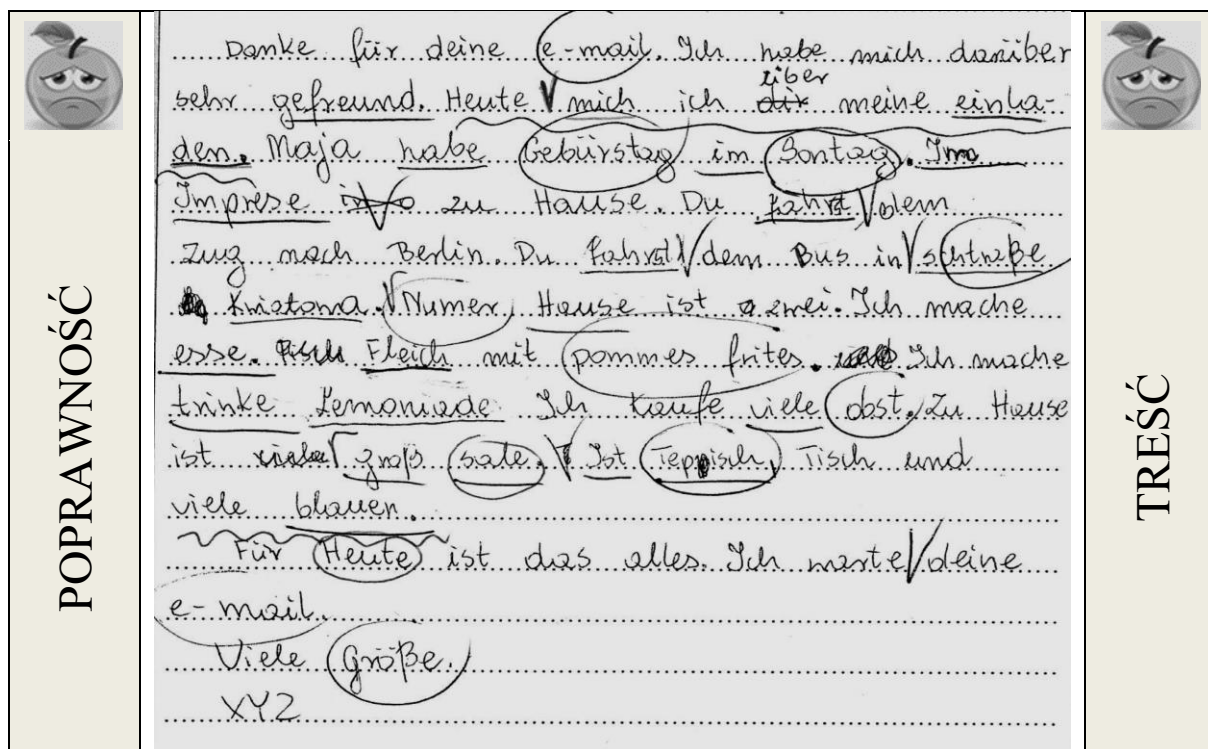 POPRAWNOŚĆ
Danke für deine e-mail. Ich habe mich darüber
sehr gefreund. Heute mich ich dir über meine einla-
den. Maja habe Gebürstag im Sontag. Im
Imprese zu Hause. Du fahrst dem
Zug nach Berlin. Du fahrst dem Bus in schtraße
Kwiatowa. Numer Hause ist zwei. Ich mache
esse. Fleich mit pommes frites. Ich mache
trinke Lemoniade Ich kaufe viele obst. Zu Hause
ist groß sale. Ist Teppisch, Tisch und
viele blauen.
Für Heute ist das alles. Ich warte deine
e-mail.
Viele Größe.
XYZ
TREŚĆ